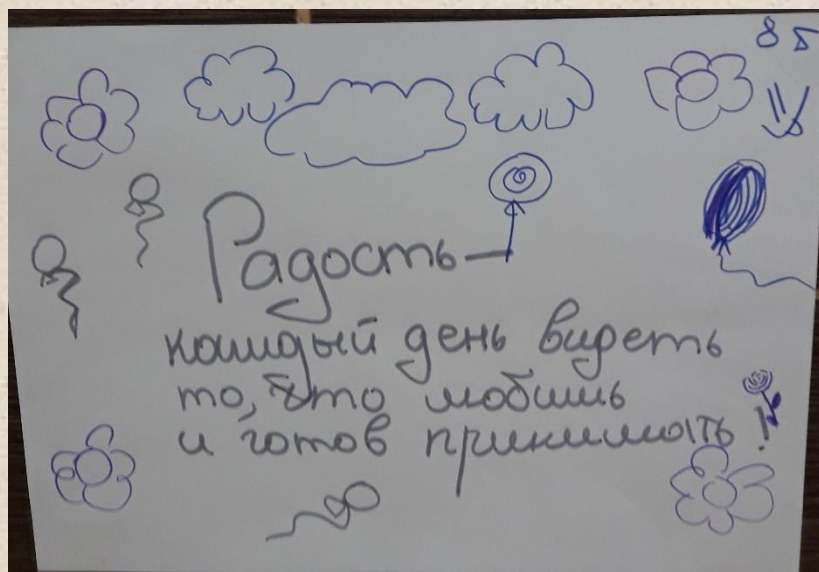 8 Б
Радость —
каждый день видеть
то, что любишь
и готов принимать!